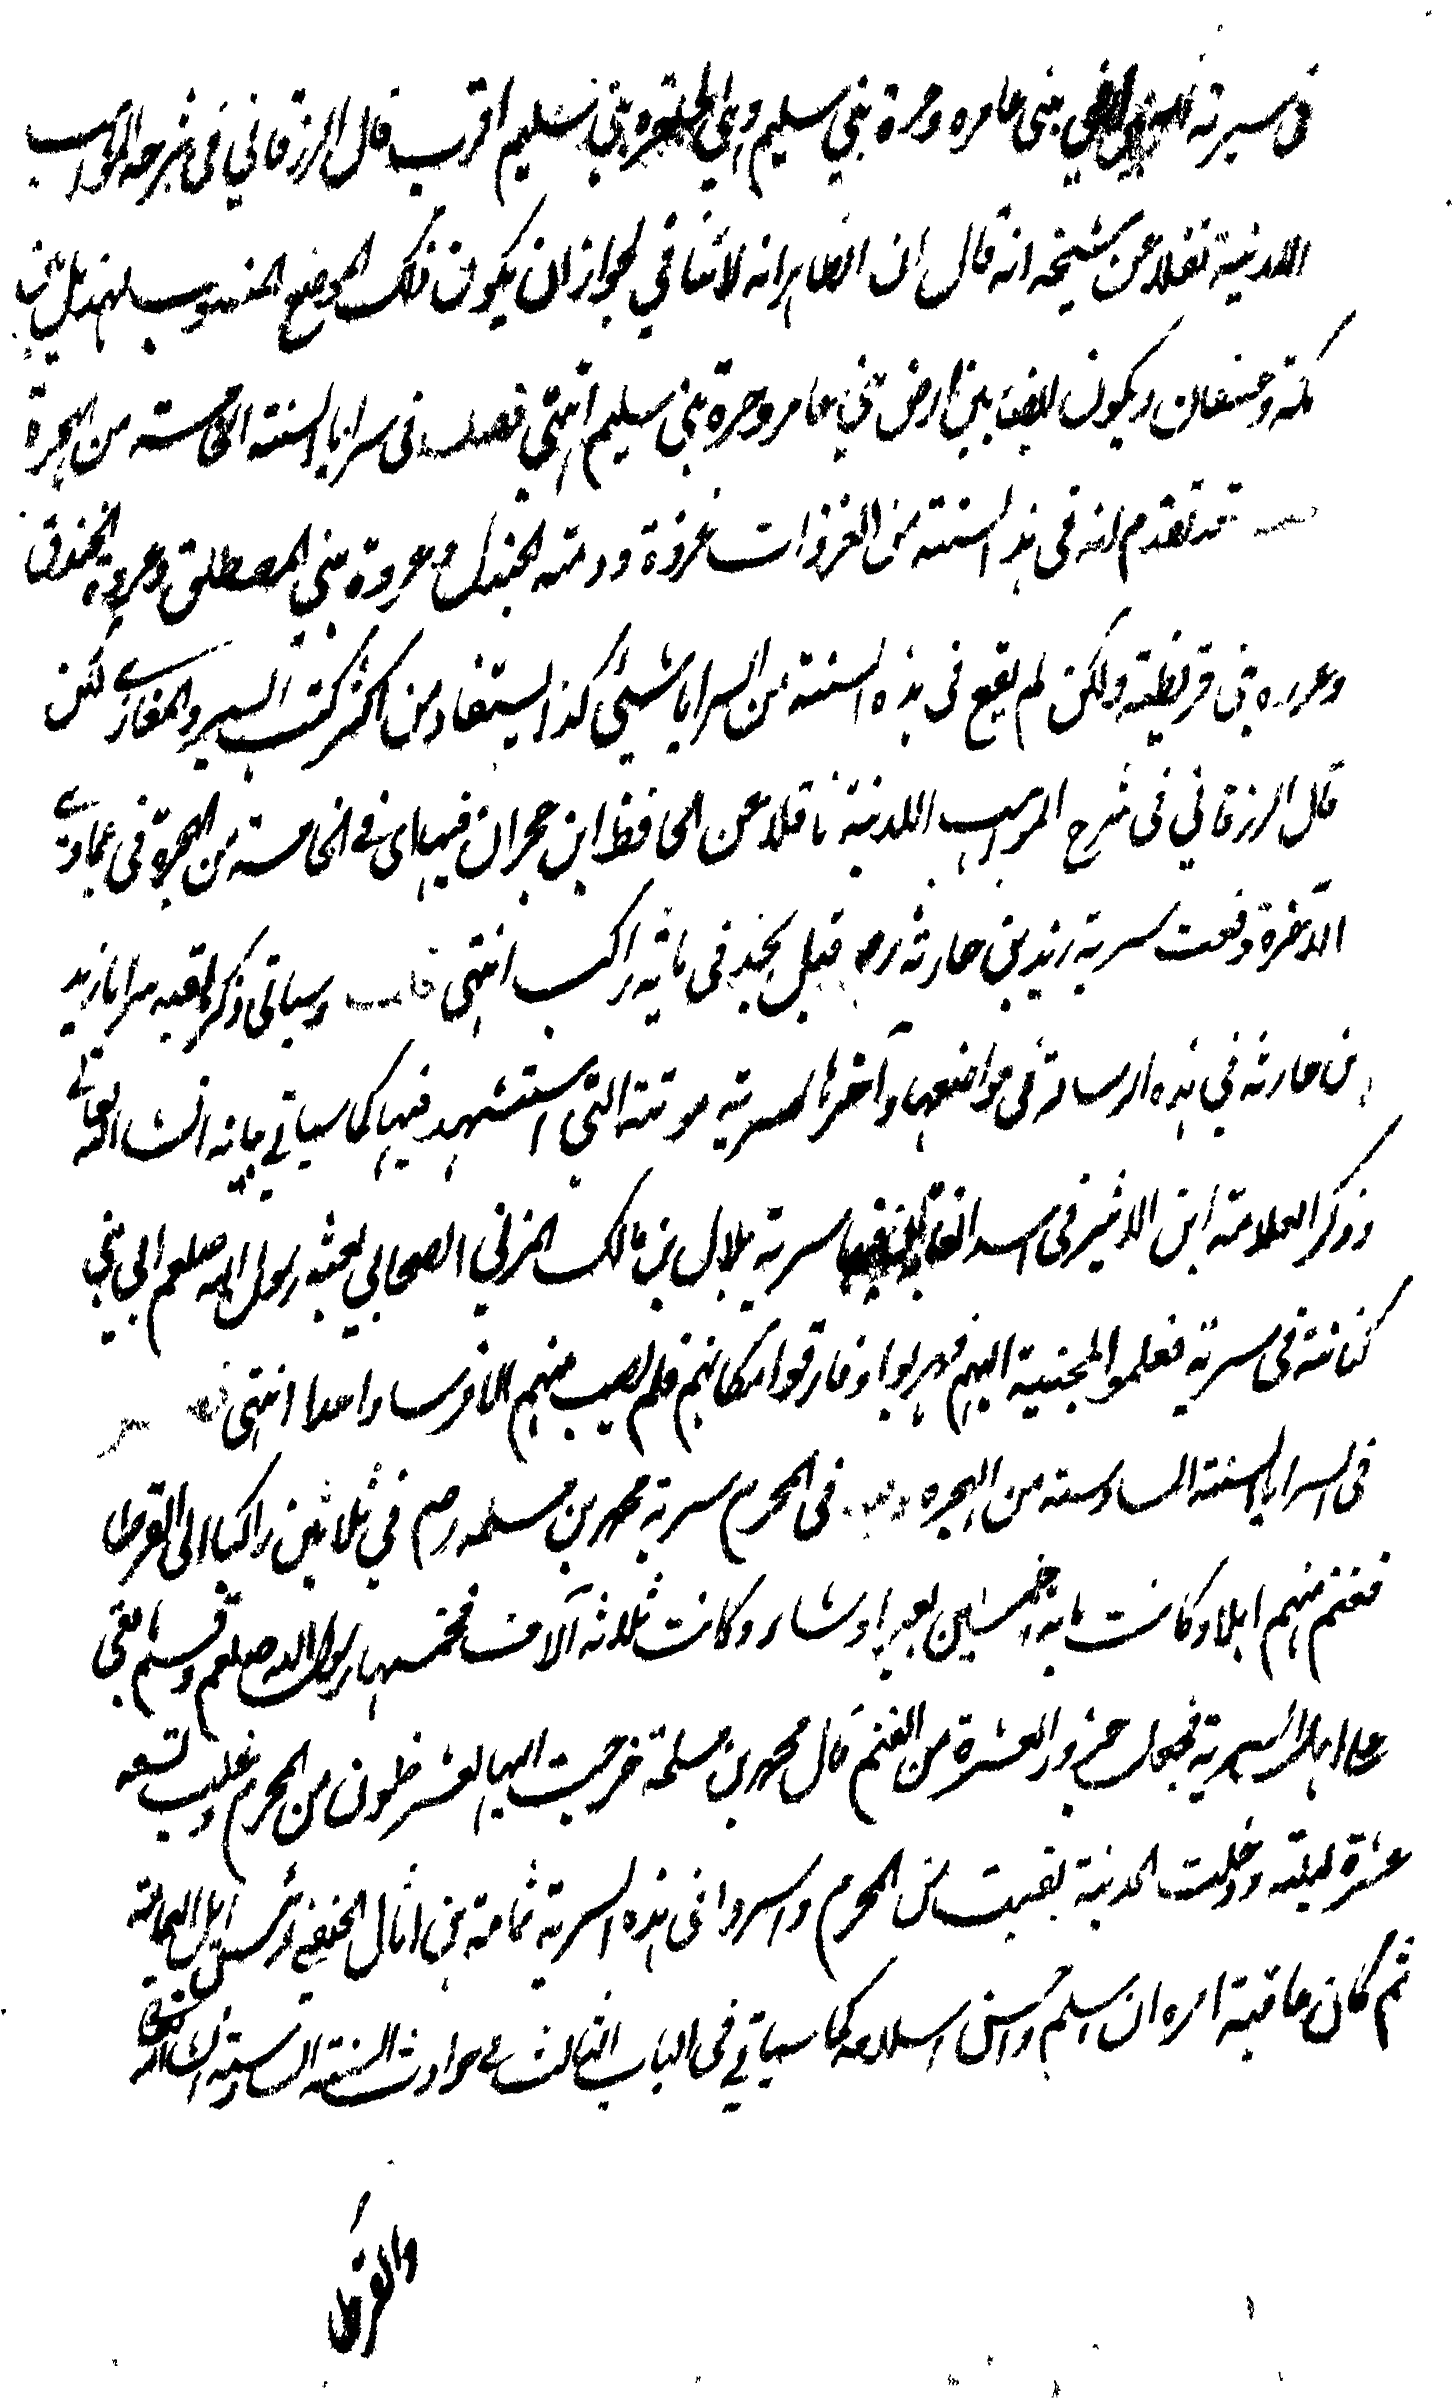 في سيرته ارض بني عامر وحرة بني سليم وهي الى حرة بني سليم اقرب قال الزرقاني في شرحه المواهب
اللدنية نقلا عن شيخه انه قال ان الظاهر انه لا تنافي لجواز ان يكون ذلك الموضع المنسوب لهذيل بين
مكة وعسفان ويكون ايضا بين ارض بني عامر وحرة بني سليم انتهى فصل في سرايا السنة الخامسة من الهجرة
قد تقدم انه في هذه السنة من الغزوات غزوة دومة الجندل وغزوة بني المصطلق وغزوة الخندق
وغزوة بني قريظة ولكن لم يقع في هذه السنة من السرايا شيئ كذا يستفاد من اكثر كتب السير والمغازي لكن
قال الزرقاني في شرح المواهب اللدنية ناقلا عن الحافظ ابن حجر ان فيها اى في الخامسة من الهجرة في جمادى
الآخرة وقعت سرية زيد بن حارثة رض قبل نجد في مائة راكب انتهى قلت وسياتي ذكر بقية سرايا زيد
بن حارثة في هذه الرسالة في مواضعها وآخرها سرية موتة التي استشهد فيها كما سياتي بيانه انشاء الله تعالى
وذكر العلامة ابن الاثير في اسد الغابة سرية بلال بن مالك المزني الصحابي بعثه رسول الله صلعم الى بني
كنانة في سرية فعلموا بمجيئه اليهم فهربوا وفارقوا مكانهم فلم يصب منهم الا فرسا واحدا انتهى فصل
في السرايا السنة السادسة من الهجرة وفيه في المحرم سرية محمد بن مسلمة رض في ثلاثين راكبا الى القرطا
فغنم منهم ابلا وكانت مائة وخمسين بعيرا وشاء وكانت ثلاثة آلاف فخمسها رسول الله صلعم وقسم ما بقي
على اهل السرية فجعل جزور العشرة من الغنم قال محمد بن مسلمة خرجت اليها لعشر خلون من المحرم وغبت تسعة
عشرة ليلة ودخلت المدينة بقيت من المحرم واسروا في هذه السرية ثمامة بن اثال الحنفي رئيس اهل اليمامة
ثم كان عاقبة امره ان اسلم وحسن اسلامه كما سياتي في الباب الثالث في حوادث السنة السادسة انشاء الله تعالى
والقرطا